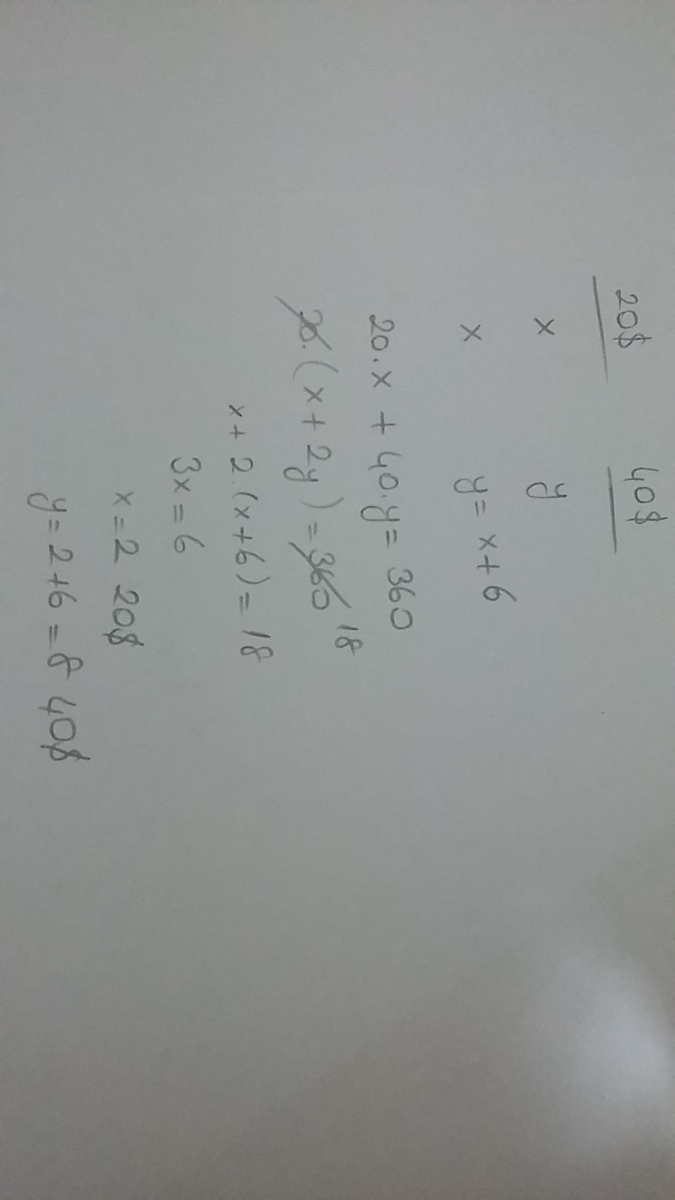 20$ 40$
x y
x y = x+6
20.x + 40.y = 360
20.(x+2y) = 360 18
x+2.(x+6) = 18
3x = 6
x = 2 20$
y = 2+6 = 8 40$